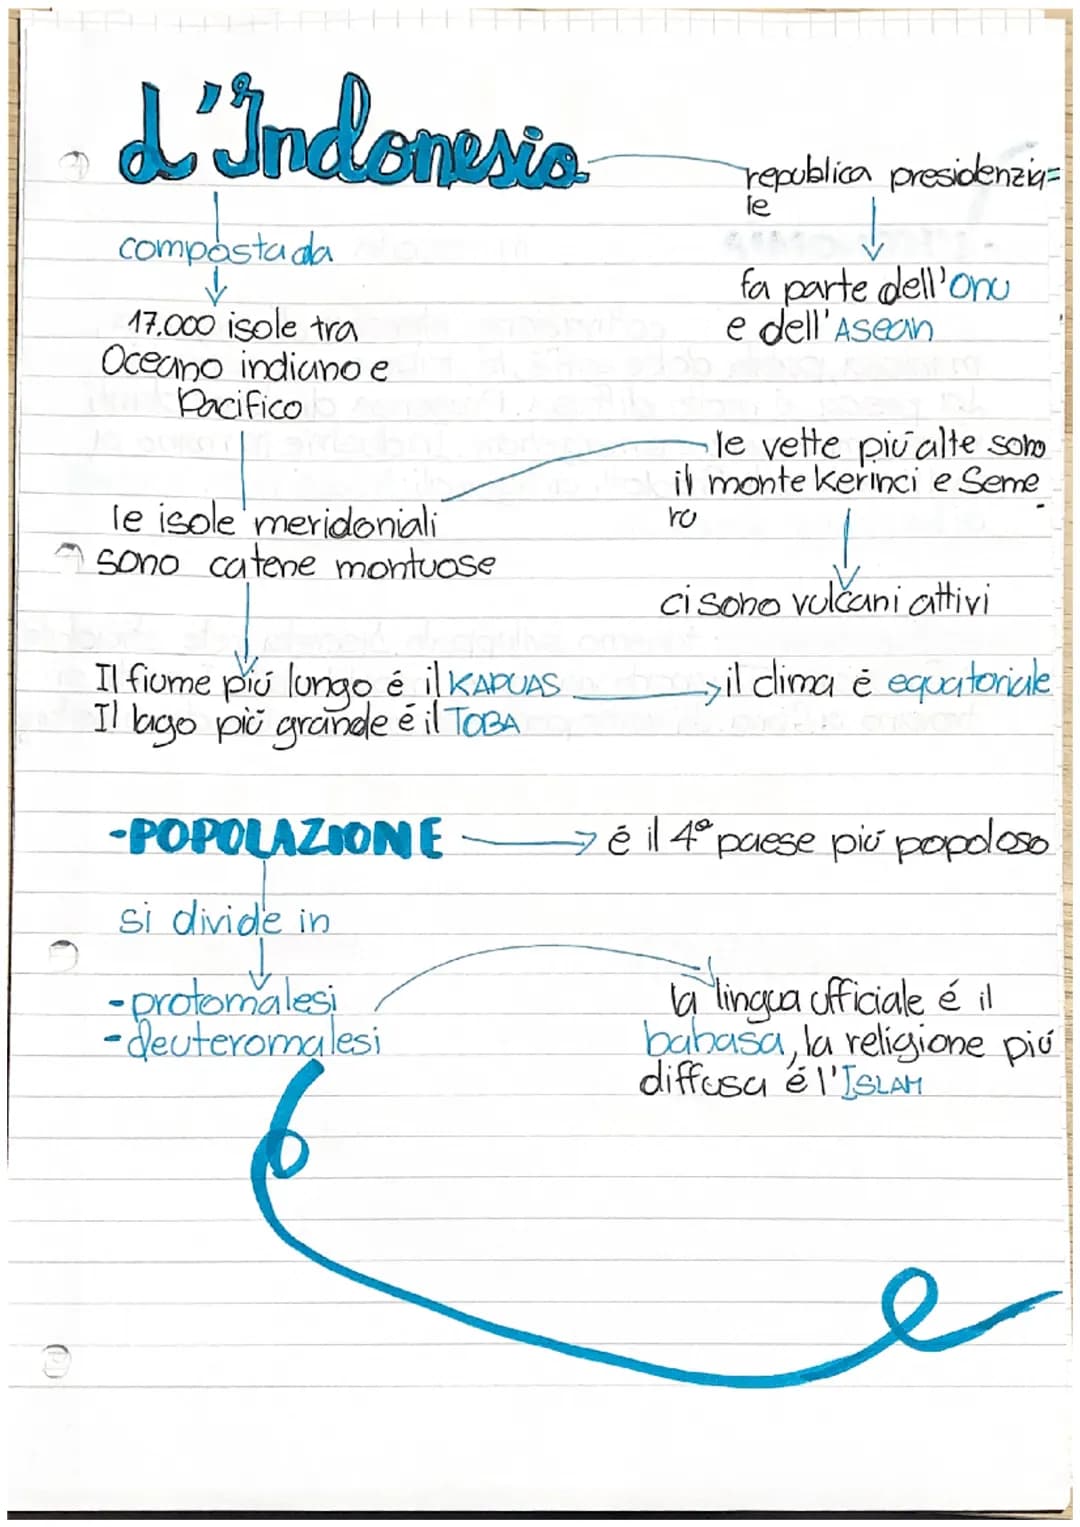 L'Indonesia
republica presidenzia=
le
composta da
fa parte dell'Onu
e dell'Asean
17.000 isole tra
Oceano indiano e
Pacifico
le vette più alte sono
il monte Kerinci e Seme
ru
le isole meridoniali
sono catene montuose
ci sono vulcani attivi
Il fiume più lungo é il KAPUAS
il clima é equatoriale
Il lago più grande é il TOBA
-POPOLAZIONE
é il 4° paese più popoloso
si divide in
-protomalesi
-deuteromalesi
la lingua ufficiale é il
bahasa, la religione più
diffusa é l'ISLAM